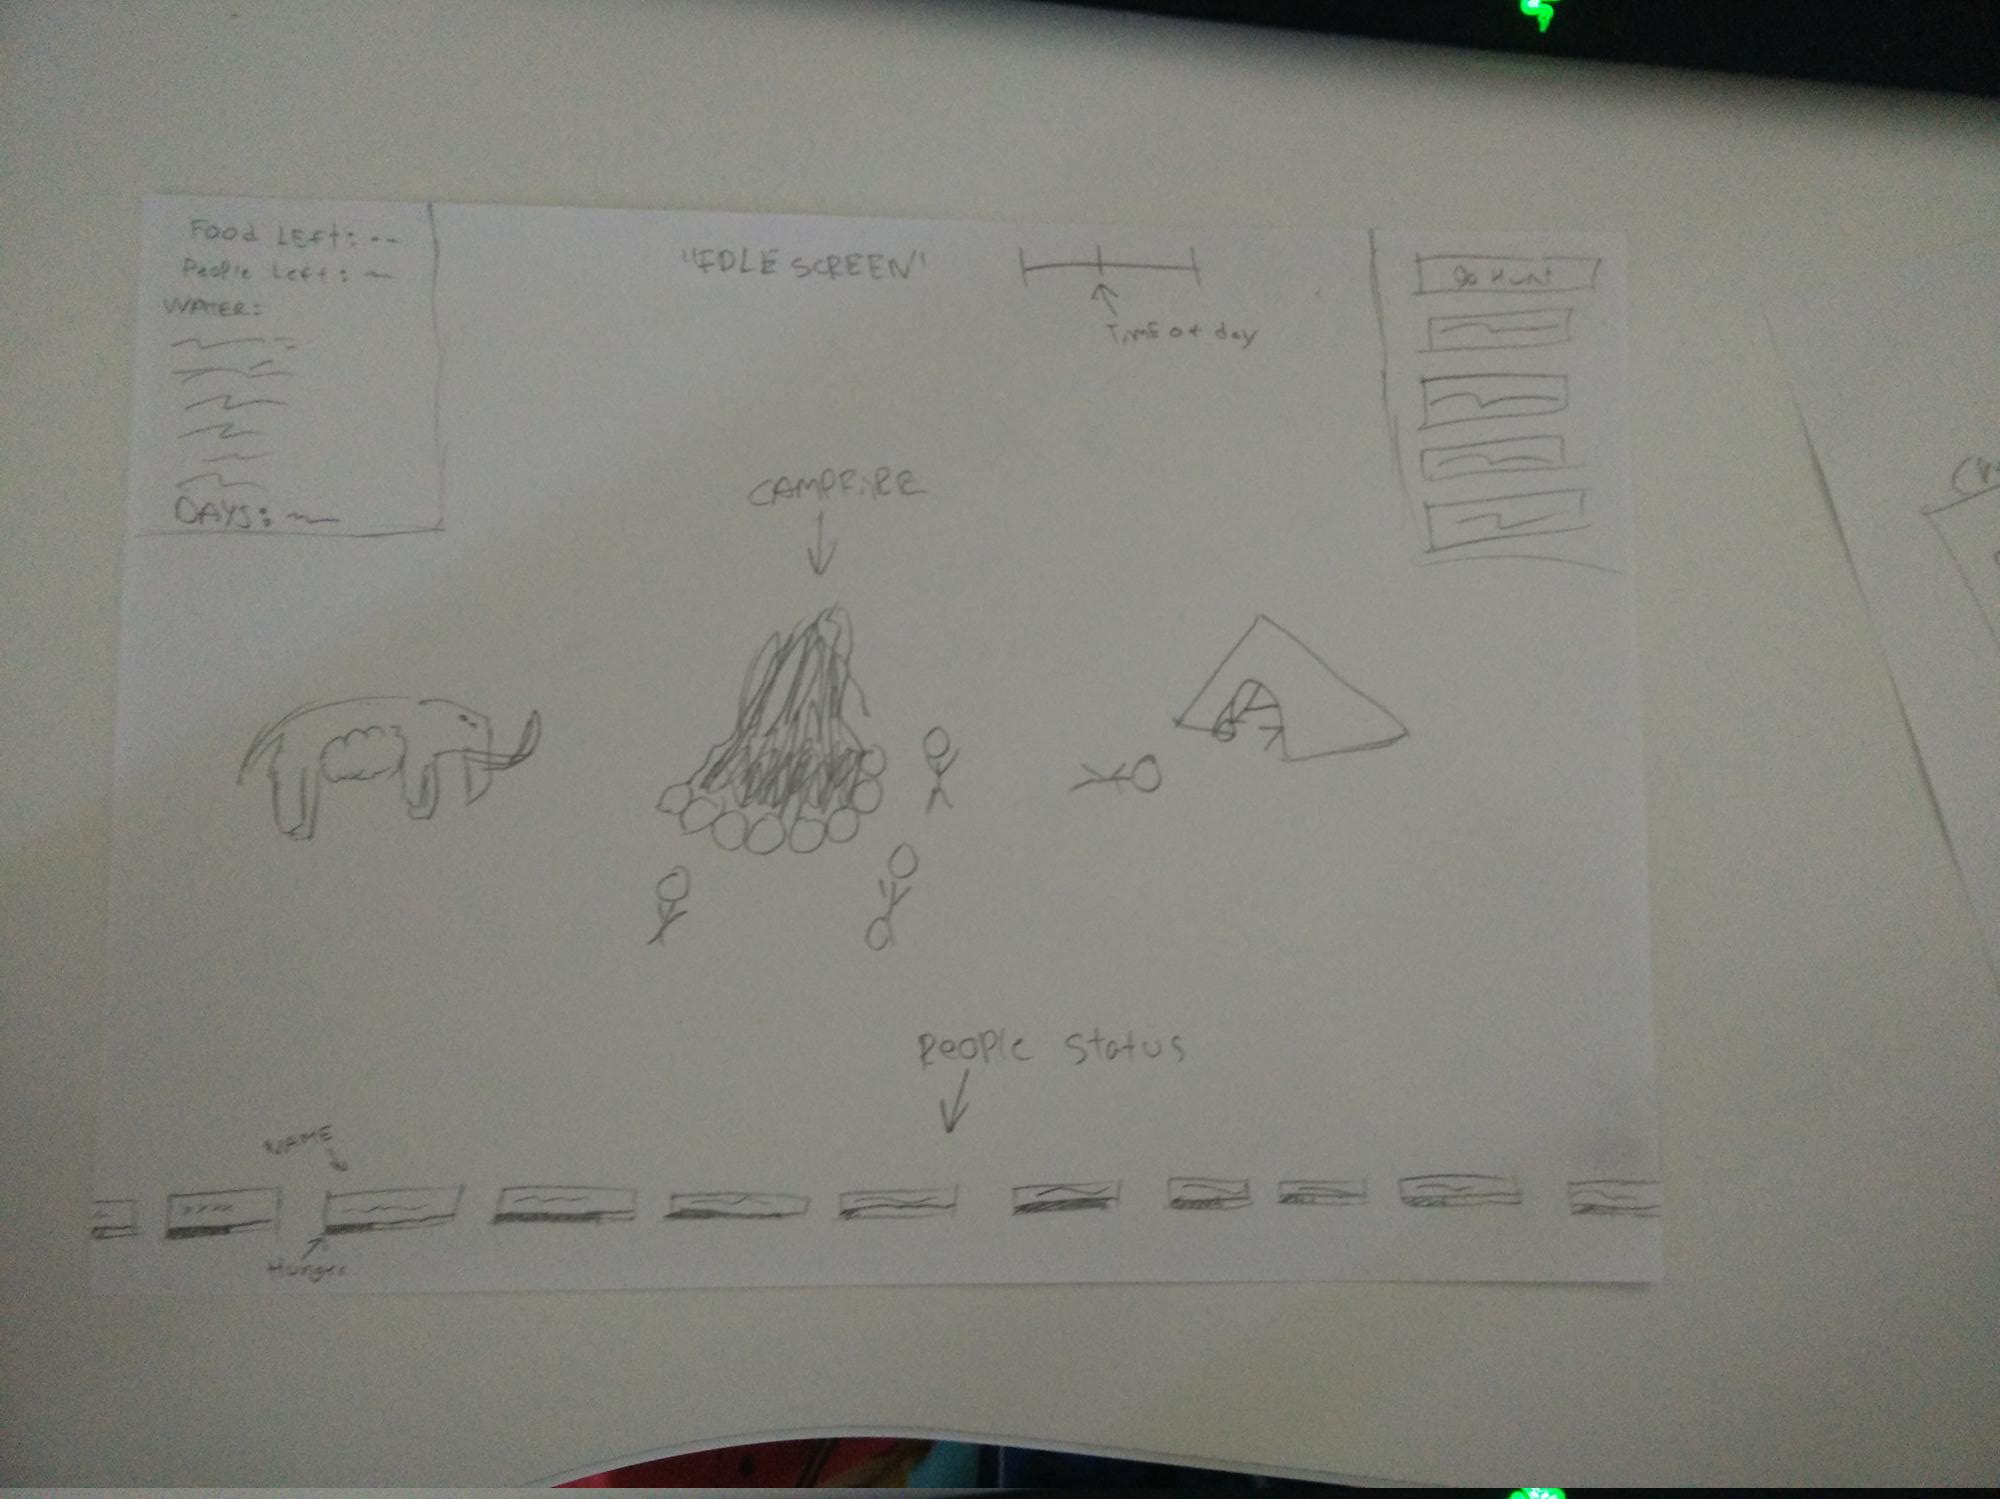 Food Left: --
People Left: ~
WATER:
DAYS: ~
"IDLE SCREEN"
Time of day
Go Hunt
CAMPFIRE
People Status
NAME
Hunger